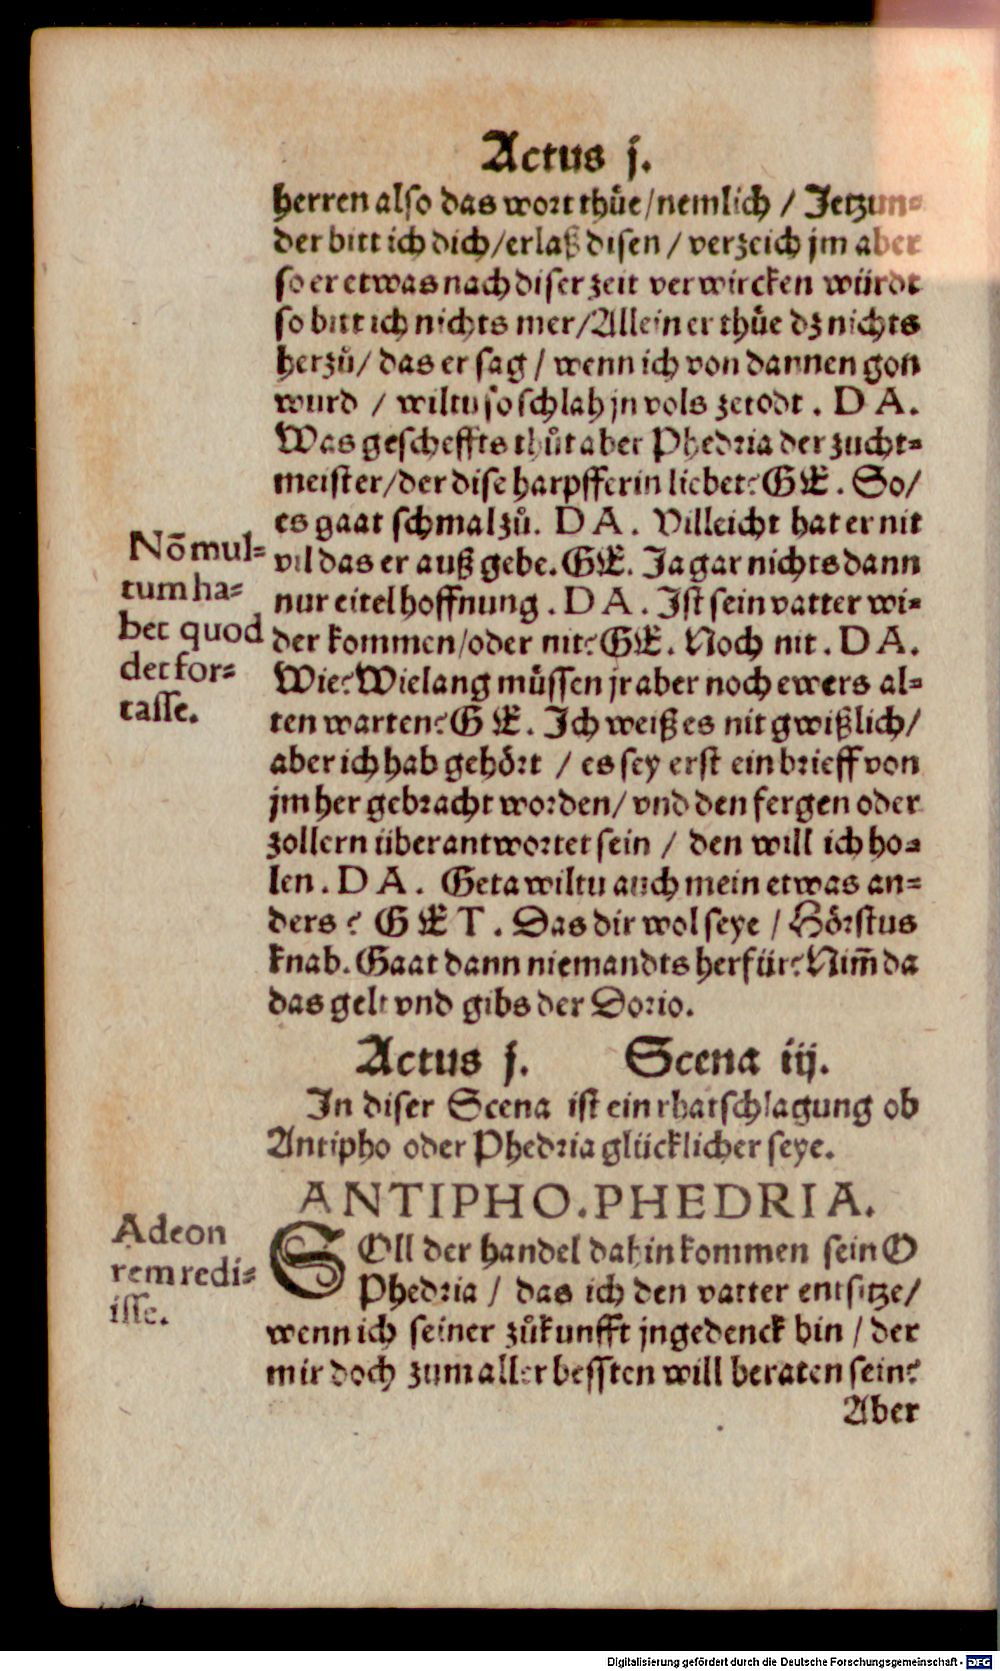 Actus j.
herren also das wort thuͤe/nemlich / Jetzun⸗
der bitt ich dich/erlaß disen / verzeich jm aber
so er etwas nach diser zeit verwircken würdt
so bitt ich nichts mer/Allein er thuͤe dz nichts
herzuͦ/ das er sag / wenn ich von dannen gon
wurd / wiltu so schlah jn vols zetodt . D A.
Was gescheffts thuͦt aber Phedria der zucht⸗
meister/der dise harpfferin liebet? GE. So/
es gaat schmal zuͦ. D A. Villeicht hat er nit
vil das er auß gebe. GE. Ja gar nichts dann
nur eitel hoffnung . D A. Ist sein vatter wi⸗
der kommen/oder nit? GE. Noch nit. D A.
Wie? Wie lang muͤssen jr aber noch ewers al⸗
ten warten? GE. Ich weiß es nit gwißlich/
aber ich hab gehoͤrt / es sey erst ein brieff von
jm her gebracht worden/ vnd den fergen oder
zollern überantwortet sein / den will ich ho⸗
len. D A. Geta wiltu auch mein etwas an⸗
ders? GET. Das dir wol seye / Hoͤrstus
knab. Gaat dann niemandts herfür? Nim̄ da
das gelt vnd gibs der Dorio.
Nō mul⸗
tum ha⸗
bet quod
det for⸗
tasse.
Actus j. Scena iij.
In diser Scena ist ein rhatschlagung ob
Antipho oder Phedria glücklicher seye.
ANTIPHO. PHEDRIA.
SOll der handel dahin kommen sein O
Phedria / das ich den vatter entsitze/
wenn ich seiner zuͦkunfft jngedenck bin / der
mir doch zum aller bessten will beraten sein?
Adeon
rem redi⸗
isse.
Aber
Digitalisierung gefördert durch die Deutsche Forschungsgemeinschaft - DFG